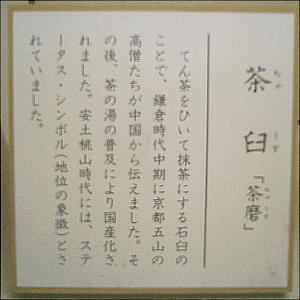 茶臼「茶磨」
ちゃ うす
ちゃうす
てん茶をひいて抹茶にする石臼の
ことで、鎌倉時代中期に京都五山の
高僧たちが中国から伝えました。そ
の後、茶の湯の普及により国産化さ
れました。安土桃山時代には、ステ
ータス・シンボル(地位の象徴)とさ
れていました。